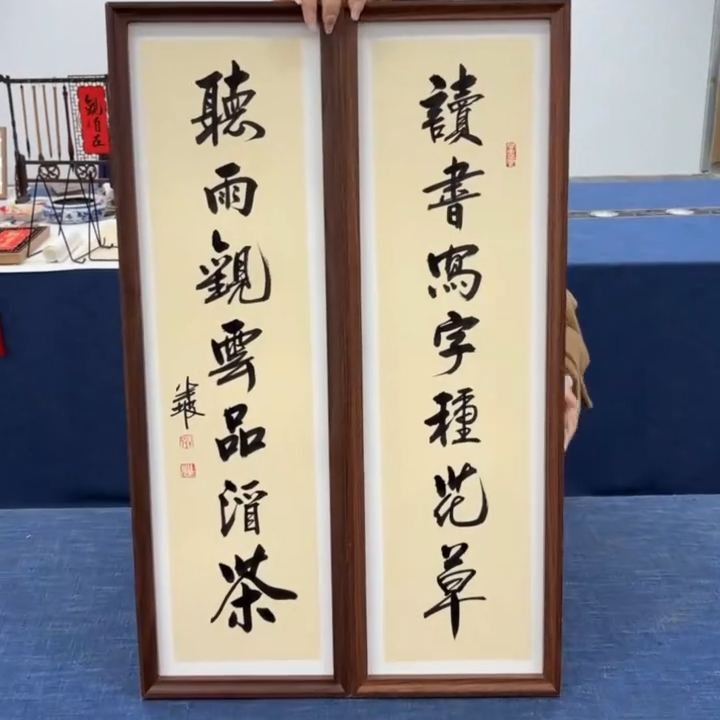 讀書寫字種花草
聽雨觀雲品酒茶
觀自在